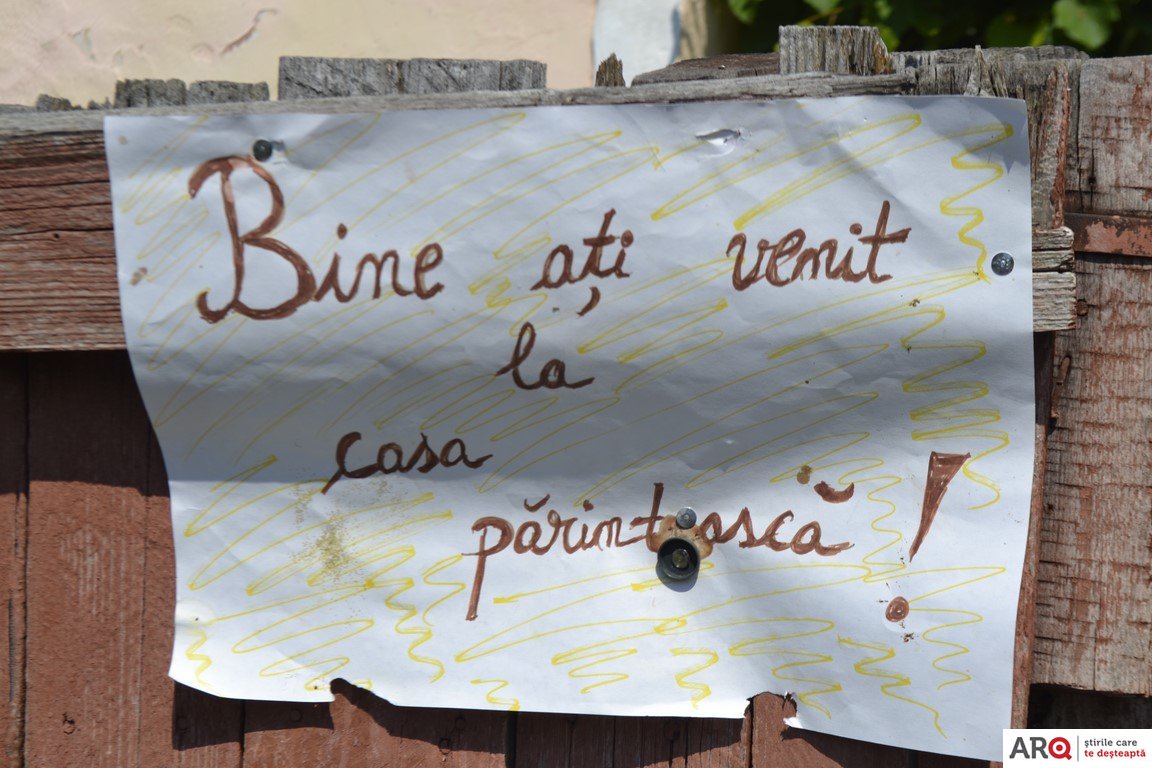 Bine ați venit
la
casa
părintească!
ARQ știrile care
te deșteaptă